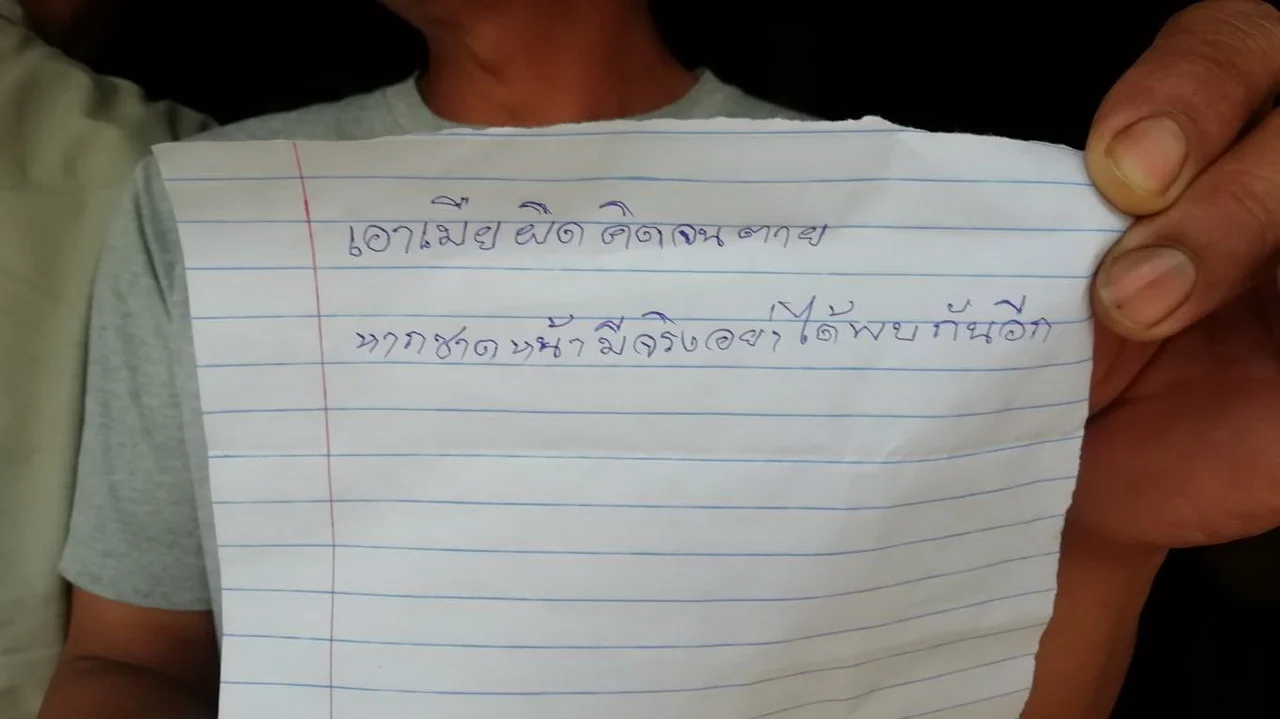 เอาเมีย ผิด คิดจนตาย
หากชาตหน้ามีจริงอย่าได้พบกันอีก